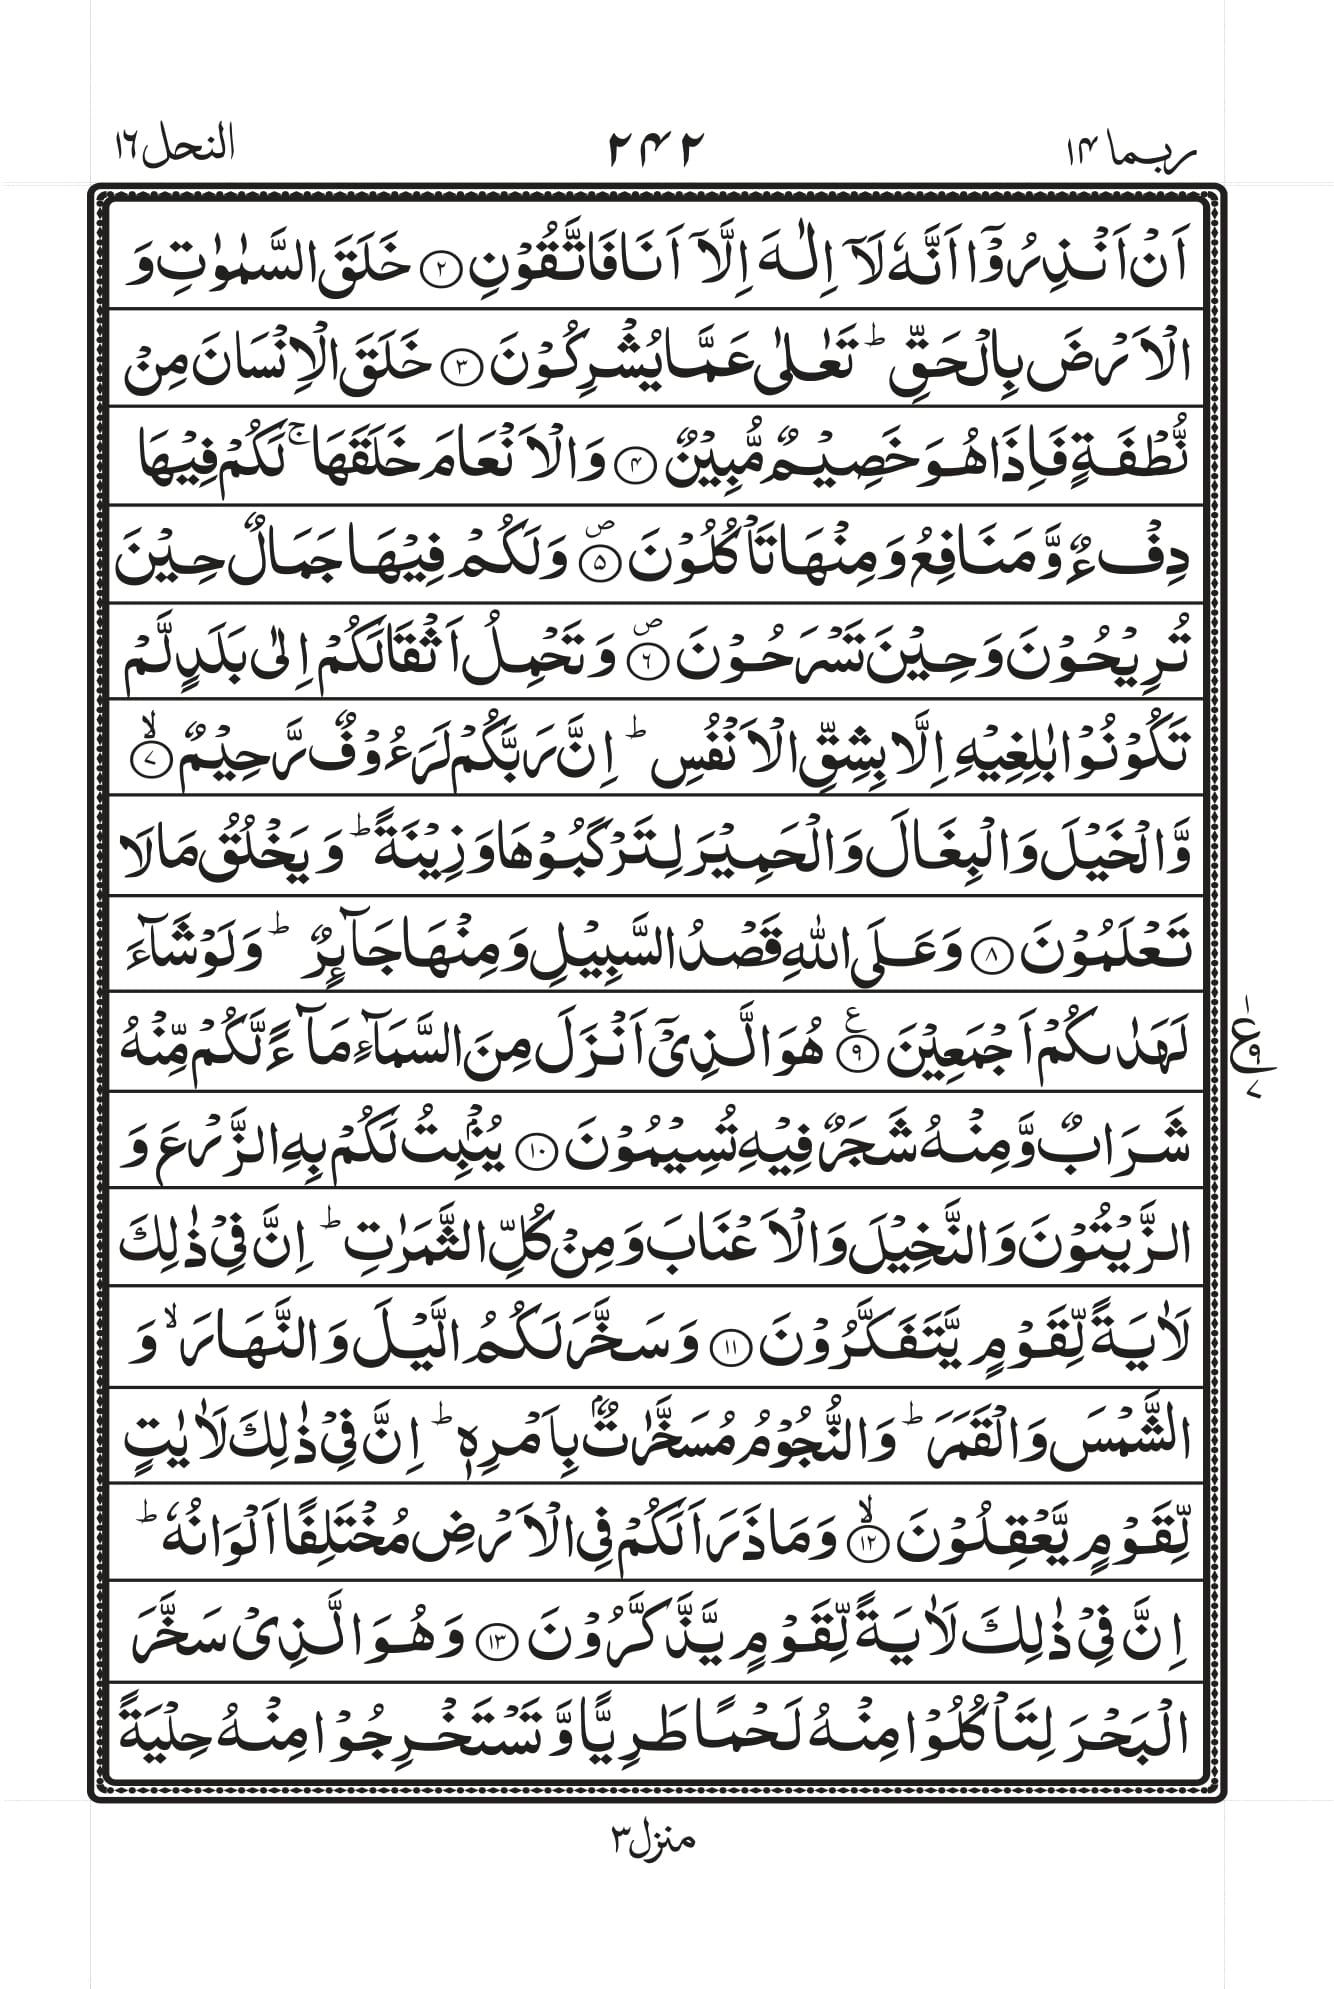 ربما ١٤ ٢٤٢ النحل ١٦
اَنْ اَنْذِرُوْۤا اَنَّهٗ لَاۤ اِلٰهَ اِلَّاۤ اَنَا فَاتَّقُوْنِ ﴿٢﴾ خَلَقَ السَّمٰوٰتِ وَ
الْاَرْضَ بِالْحَقِّ ؕ تَعٰلٰی عَمَّا یُشْرِكُوْنَ ﴿٣﴾ خَلَقَ الْاِنْسَانَ مِنْ
نُّطْفَةٍ فَاِذَا هُوَ خَصِیْمٌ مُّبِیْنٌ ﴿٤﴾ وَالْاَنْعَامَ خَلَقَهَا ۚ لَكُمْ فِیْهَا
دِفْءٌ وَّمَنَافِعُ وَمِنْهَا تَاْكُلُوْنَ ﴿٥﴾۪ وَلَكُمْ فِیْهَا جَمَالٌ حِیْنَ
تُرِیْحُوْنَ وَحِیْنَ تَسْرَحُوْنَ ﴿٦﴾۪ وَتَحْمِلُ اَثْقَالَكُمْ اِلٰی بَلَدٍ لَّمْ
تَكُوْنُوْا بٰلِغِیْهِ اِلَّا بِشِقِّ الْاَنْفُسِ ؕ اِنَّ رَبَّكُمْ لَرَءُوْفٌ رَّحِیْمٌ ﴿٧﴾ۙ
وَّالْخَیْلَ وَالْبِغَالَ وَالْحَمِیْرَ لِتَرْكَبُوْهَا وَزِیْنَةً ؕ وَیَخْلُقُ مَا لَا
تَعْلَمُوْنَ ﴿٨﴾ وَعَلَی اللّٰهِ قَصْدُ السَّبِیْلِ وَمِنْهَا جَآىِٕرٌ ؕ وَلَوْ شَآءَ
لَهَدٰىكُمْ اَجْمَعِیْنَ ﴿٩﴾ ع هُوَ الَّذِیْۤ اَنْزَلَ مِنَ السَّمَآءِ مَآءً لَّكُمْ مِّنْهُ
١ ع ٩ ٧
شَرَابٌ وَّمِنْهُ شَجَرٌ فِیْهِ تُسِیْمُوْنَ ﴿١٠﴾ یُنْۢبِتُ لَكُمْ بِهِ الزَّرْعَ وَ
الزَّیْتُوْنَ وَالنَّخِیْلَ وَالْاَعْنَابَ وَمِنْ كُلِّ الثَّمَرٰتِ ؕ اِنَّ فِیْ ذٰلِكَ
لَاٰیَةً لِّقَوْمٍ یَّتَفَكَّرُوْنَ ﴿١١﴾ وَسَخَّرَ لَكُمُ الَّیْلَ وَالنَّهَارَ ۙ وَ
الشَّمْسَ وَالْقَمَرَ ؕ وَالنُّجُوْمُ مُسَخَّرٰتٌۢ بِاَمْرِهٖ ؕ اِنَّ فِیْ ذٰلِكَ لَاٰیٰتٍ
لِّقَوْمٍ یَّعْقِلُوْنَ ﴿١٢﴾ۙ وَمَا ذَرَاَ لَكُمْ فِی الْاَرْضِ مُخْتَلِفًا اَلْوَانُهٗ ؕ
اِنَّ فِیْ ذٰلِكَ لَاٰیَةً لِّقَوْمٍ یَّذَّكَّرُوْنَ ﴿١٣﴾ وَهُوَ الَّذِیْ سَخَّرَ
الْبَحْرَ لِتَاْكُلُوْا مِنْهُ لَحْمًا طَرِیًّا وَّتَسْتَخْرِجُوْا مِنْهُ حِلْیَةً
منزل ٣